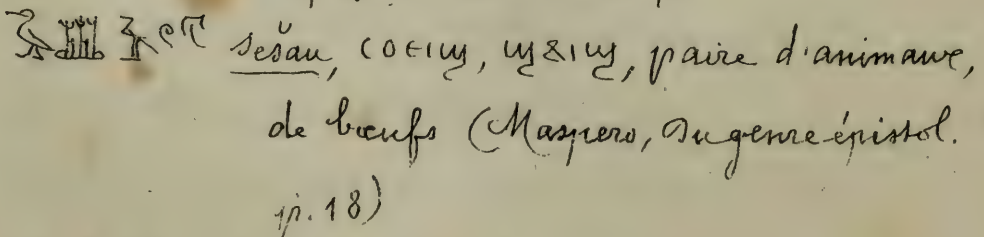 sešau, ⲥⲟⲉⲓϣ, ϣⲁⲓϣ, paire d'animaux,
de bœufs (Maspero, Du genre épistol.
p. 18)